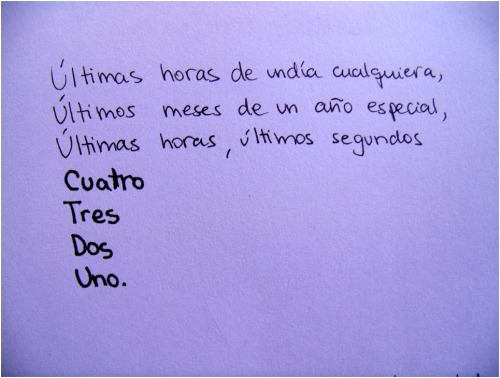 Últimas horas de undía cualquiera,
Últimos meses de un año especial,
Últimas horas, últimos segundos
Cuatro
Tres
Dos
Uno.